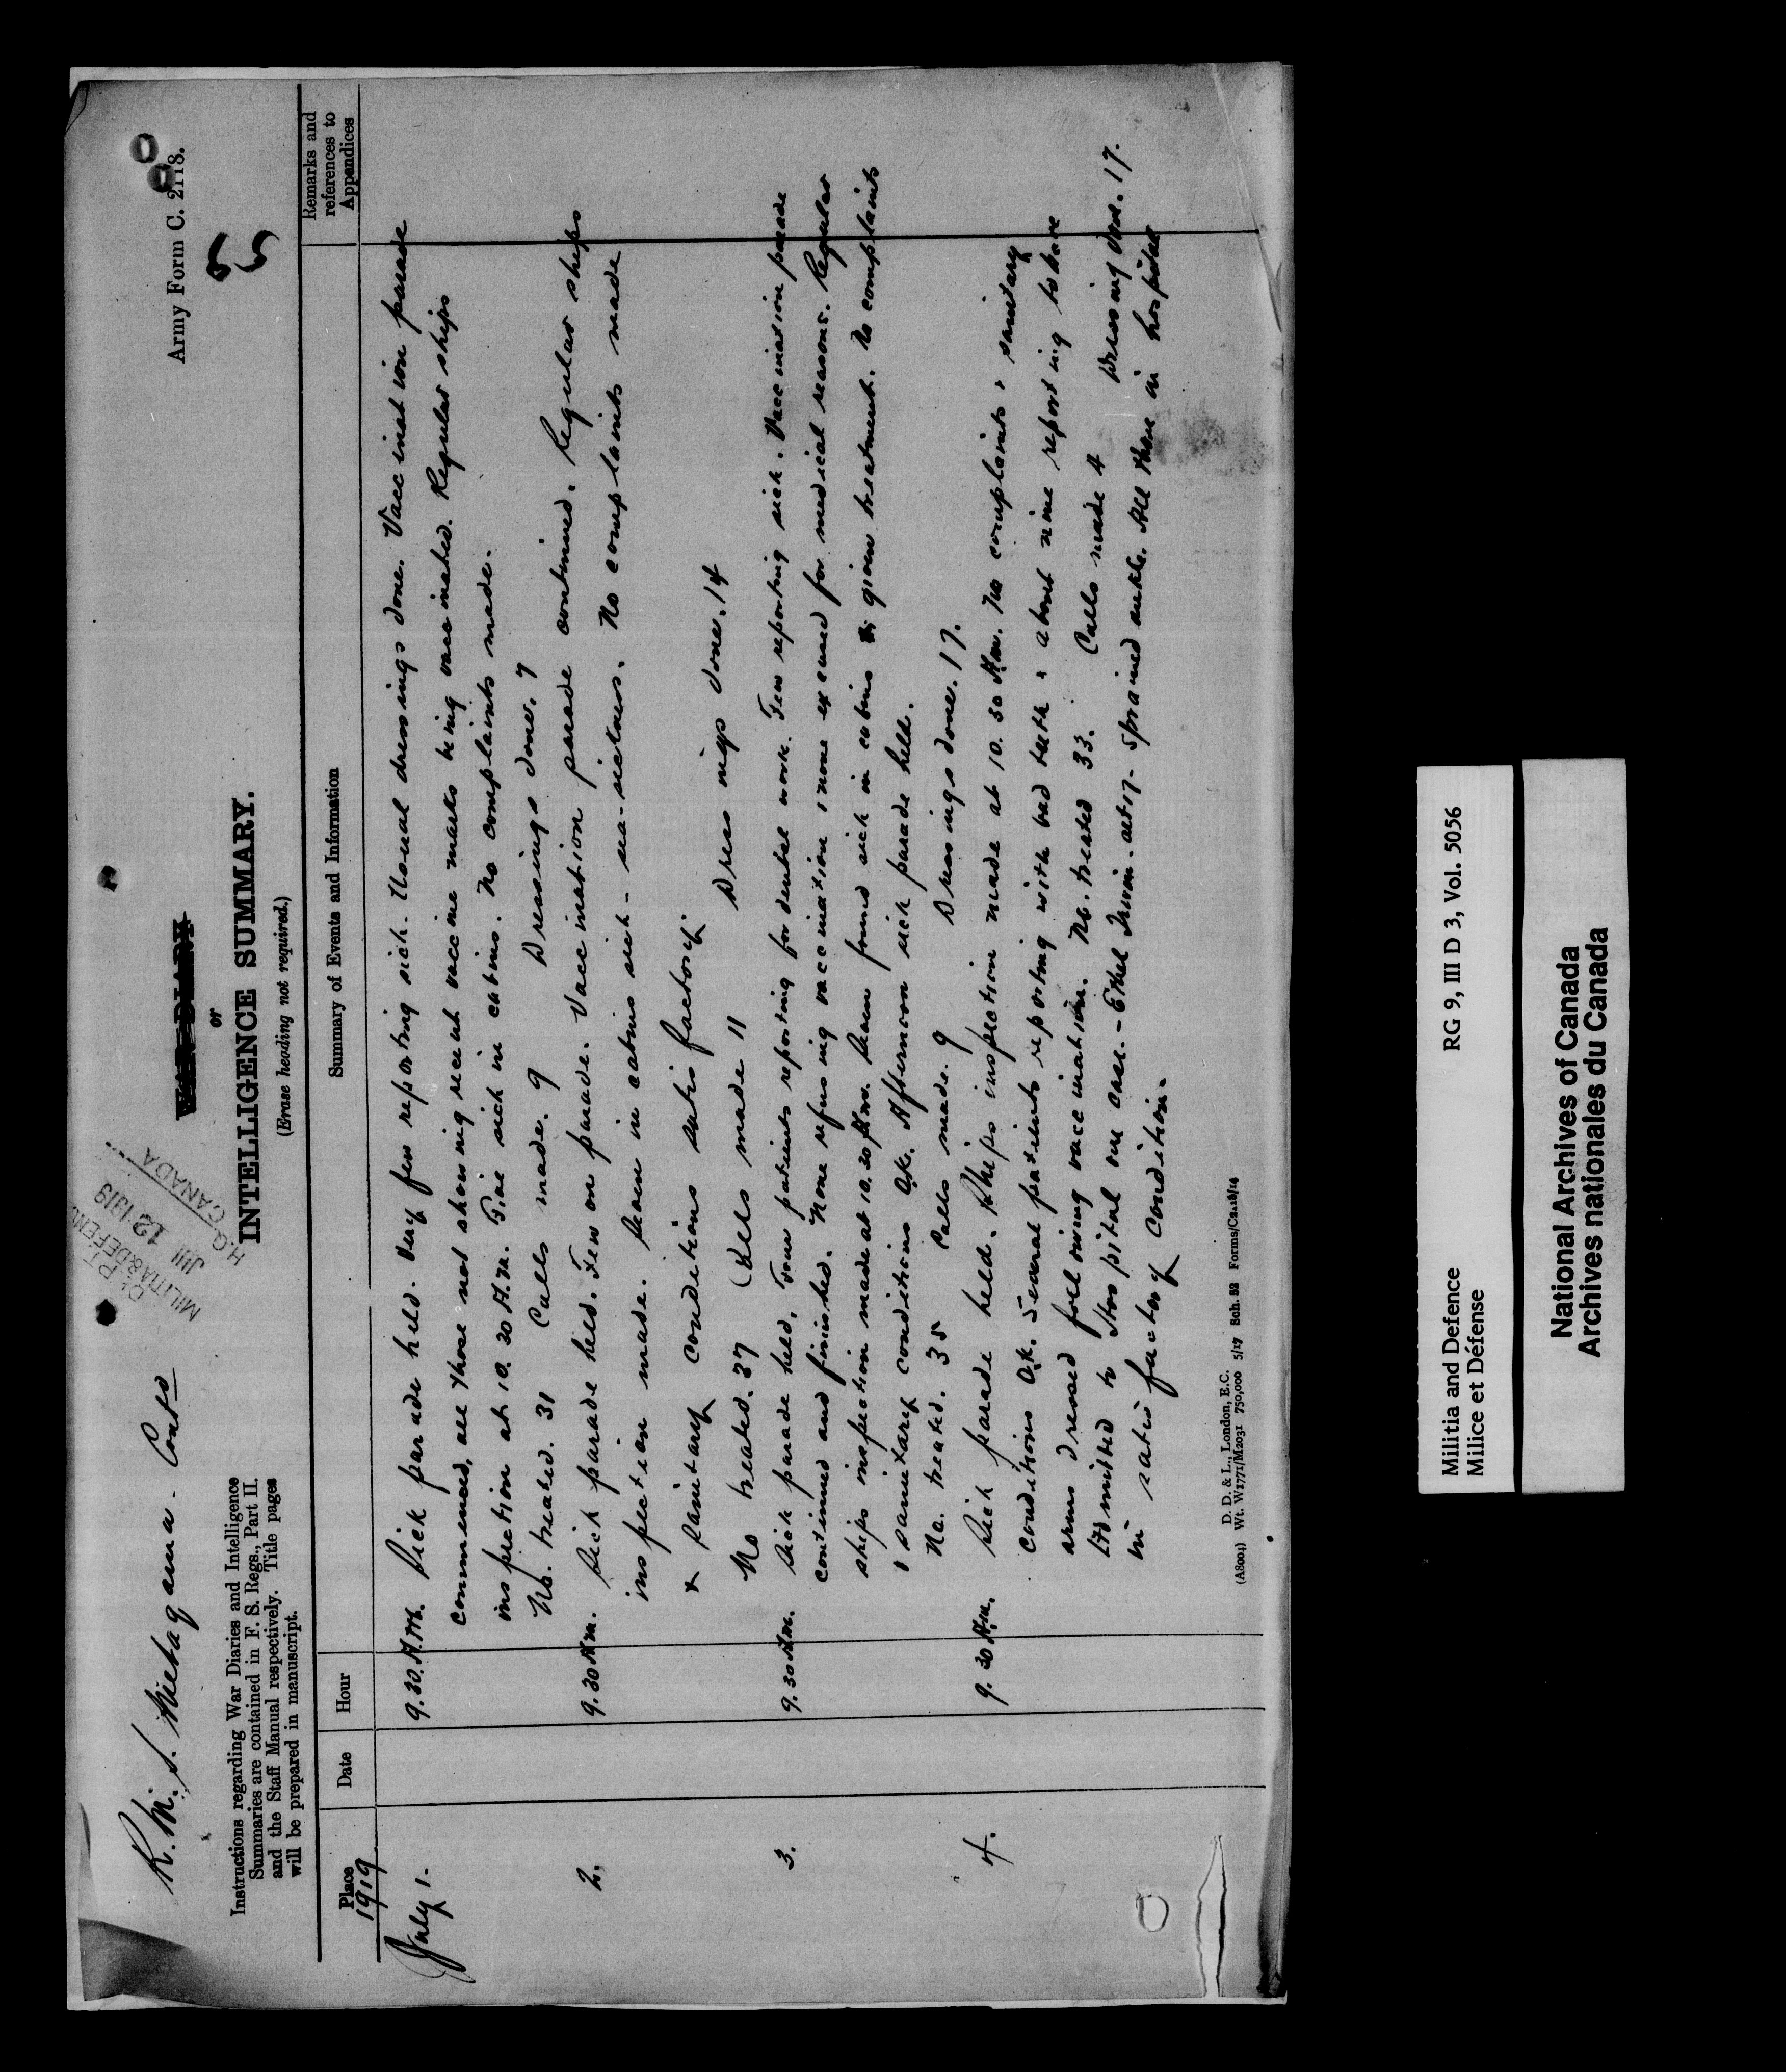 Army Form C. 2118.
55
R.M.S. Metagama. Contd
DEPT.
MILITIA & DEFENCE
JUL 12 1919
H.Q. CANADA
WAR DIARY
or
INTELLIGENCE SUMMARY.
(Erase heading not required.)
Instructions regarding War Diaries and Intelligence
Summaries are contained in F. S. Regs., Part II.
and the Staff Manual respectively. Title pages
will be prepared in manuscript.
Place
Date
Hour
Summary of Events and Information
Remarks and
references to
Appendices
1919
July 1. 9.30.A.M. Sick parade held. Very few reporting sick. Usual dressings done. Vaccination parade
commenced, all those not showing recent vaccine marks being vaccinated. Regular ships
inspection at 10.30 A.M. Five sick in cabins. No complaints made.
No. treated. 31 Calls made. 9 Dressings done. 7
2. 9.30 A.M. Sick parade held. Few on parade. Vaccination parade continued. Regular ships
inspection made. Seven in cabins sick - sea-sickness. No complaints made
& sanitary conditions satisfactory
No treated. 37 Calls made 11 Dressings done. 14
3. 9.30 A.M. Sick parade held. Four patients reporting for dental work. Few reporting sick. Vaccination parade
continued and finished. None refusing vaccination & none excused for medical reasons. Regular
ships inspection made at 10.30 A.M. Seven found sick in cabins & given treatment. No complaints
& sanitary conditions O.K. Afternoon sick parade held.
No. treated. 35 Calls made. 9 Dressings done. 17.
4. 9.30 A.M. Sick parade held. Ships inspection made at 10.30 A.M. No complaints & sanitary
conditions O.K. Several patients reporting with bad teeth & about nine reporting to have
arms dressed following vaccination. No. treated 33. Calls made 4 Dressing done. 17.
Admitted to Hospital one case - Ethel aet 17 - sprained ankle. All those in hospital
in satisfactory condition.
D. D. & L., London, E.C.
(A8004) Wt. W1771/M2031 750,000 5/17 Sch. 52 Forms/C2118/14
Militia and Defence
Milice et Défense
RG 9, III D 3, Vol. 5056
National Archives of Canada
Archives nationales du Canada